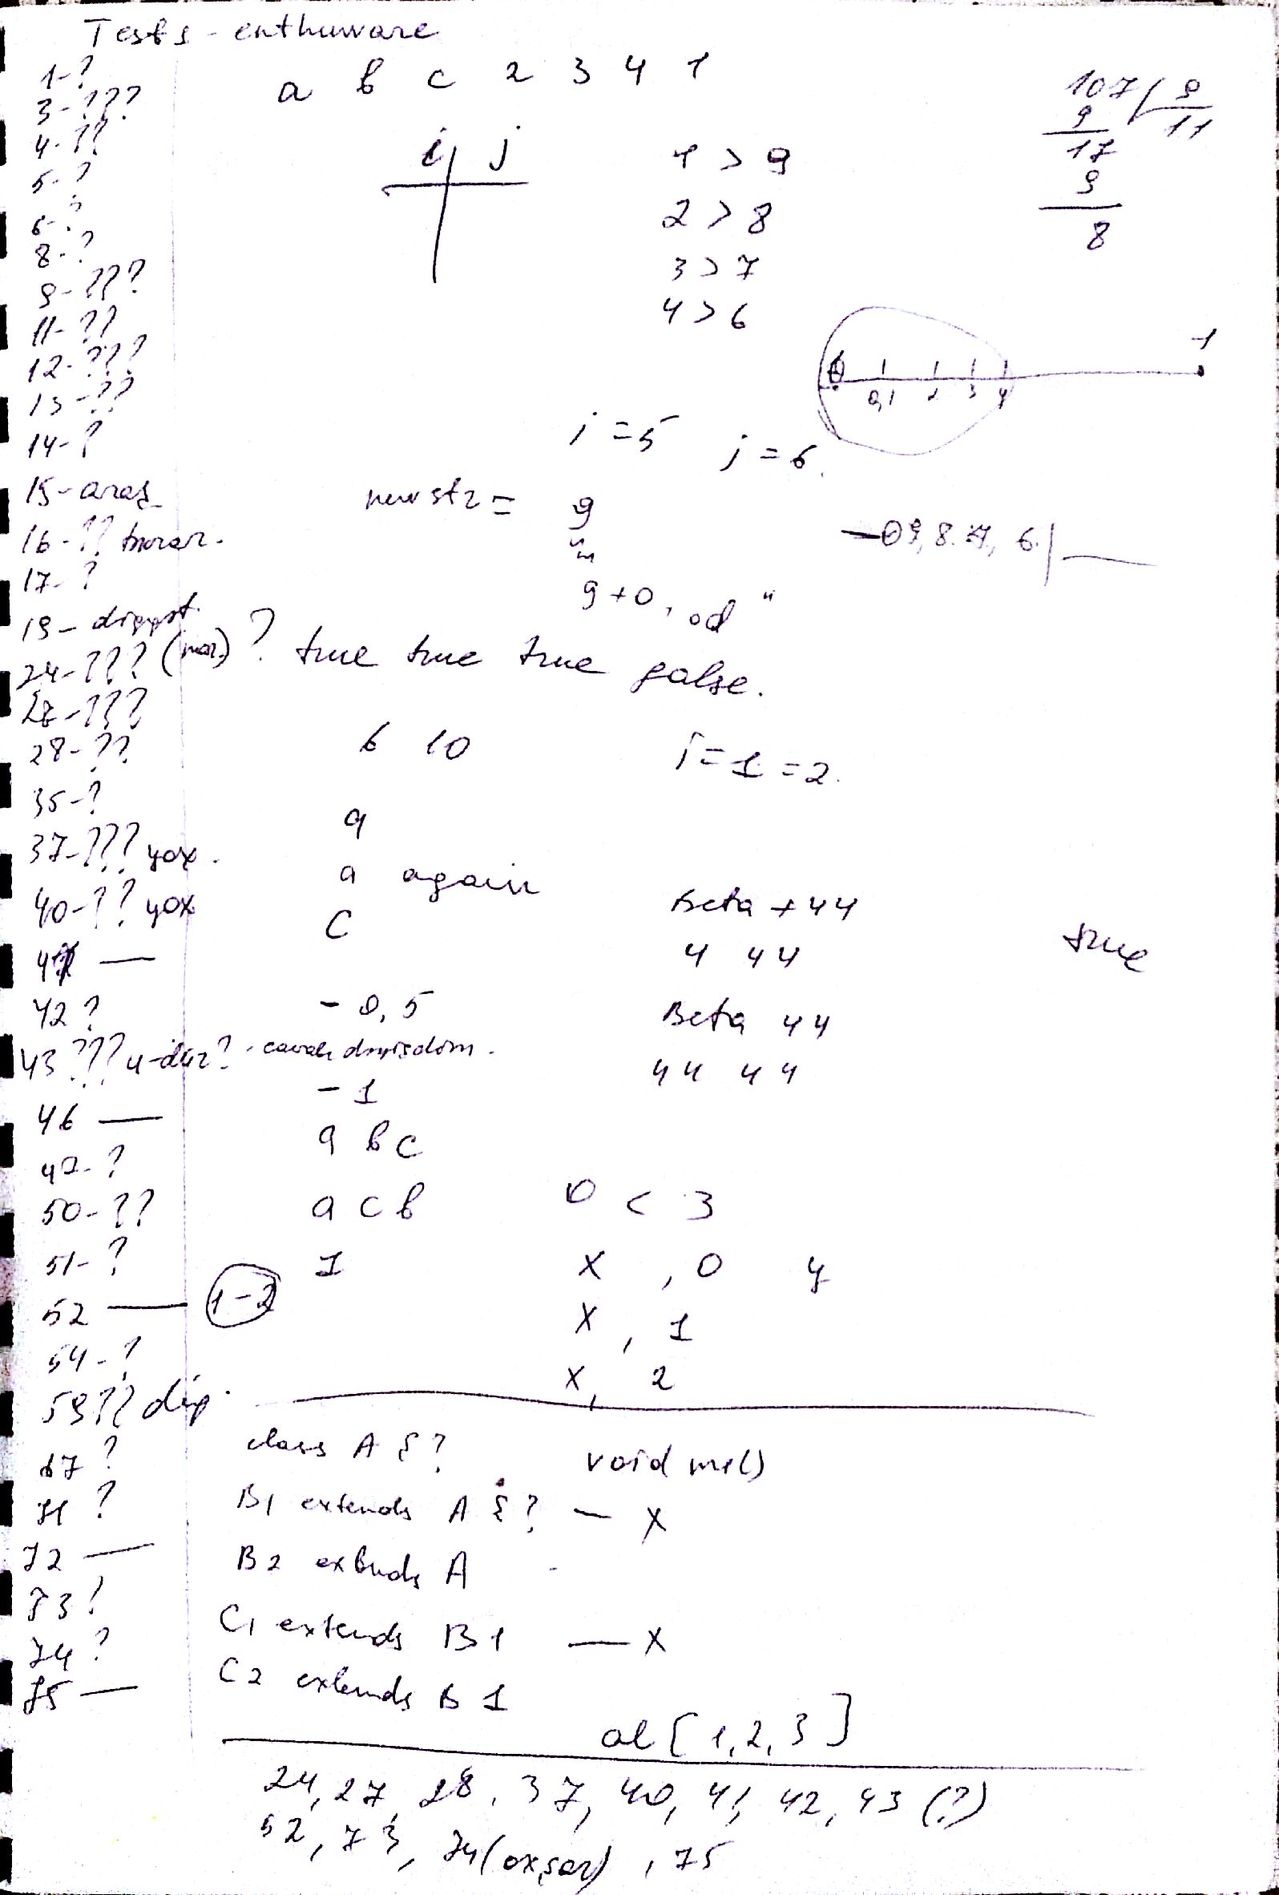 Tests - enthuware
1-?
a b c 2 3 4 1
3-???
4-??
5-?
6-?
8-?
9-???
11-??
12-???
13-??
14-?
107 9
9 11
17
9
8
i j
1 > 9
2 > 8
3 > 7
4 > 6
0 0,1 2 3 4 1
i = 5 j = 6.
15-araş
newstr = 9
16-??
" "
9+0, od "
17-?
19-
24-??? ? true true true false.
27-???
28-??
6 10 i = 1 = 2.
35-?
a
37-??? yox.
a again
40-?? yox
C
Beta + 44
41 —
4 44
true
42 ?
- 0,5
Beta 44
43 ??? 4-düz?
44 44
- 1
46 —
a b c
47-?
50-??
a c b
0 < 3
51-?
1
x , 0 y
52 — 1-2
x , 1
54-?
x, 2
59??
67 ?
class A {? void m1()
71 ?
B1 extends A {? — X
72 —
B2 extends A
73 ?
C1 extends B1 — X
74 ?
C2 extends B1
75 —
al [1,2,3]
24, 27, 28, 37, 40, 41, 42, 43 (?)
52, 73, 74(oxşar), 75